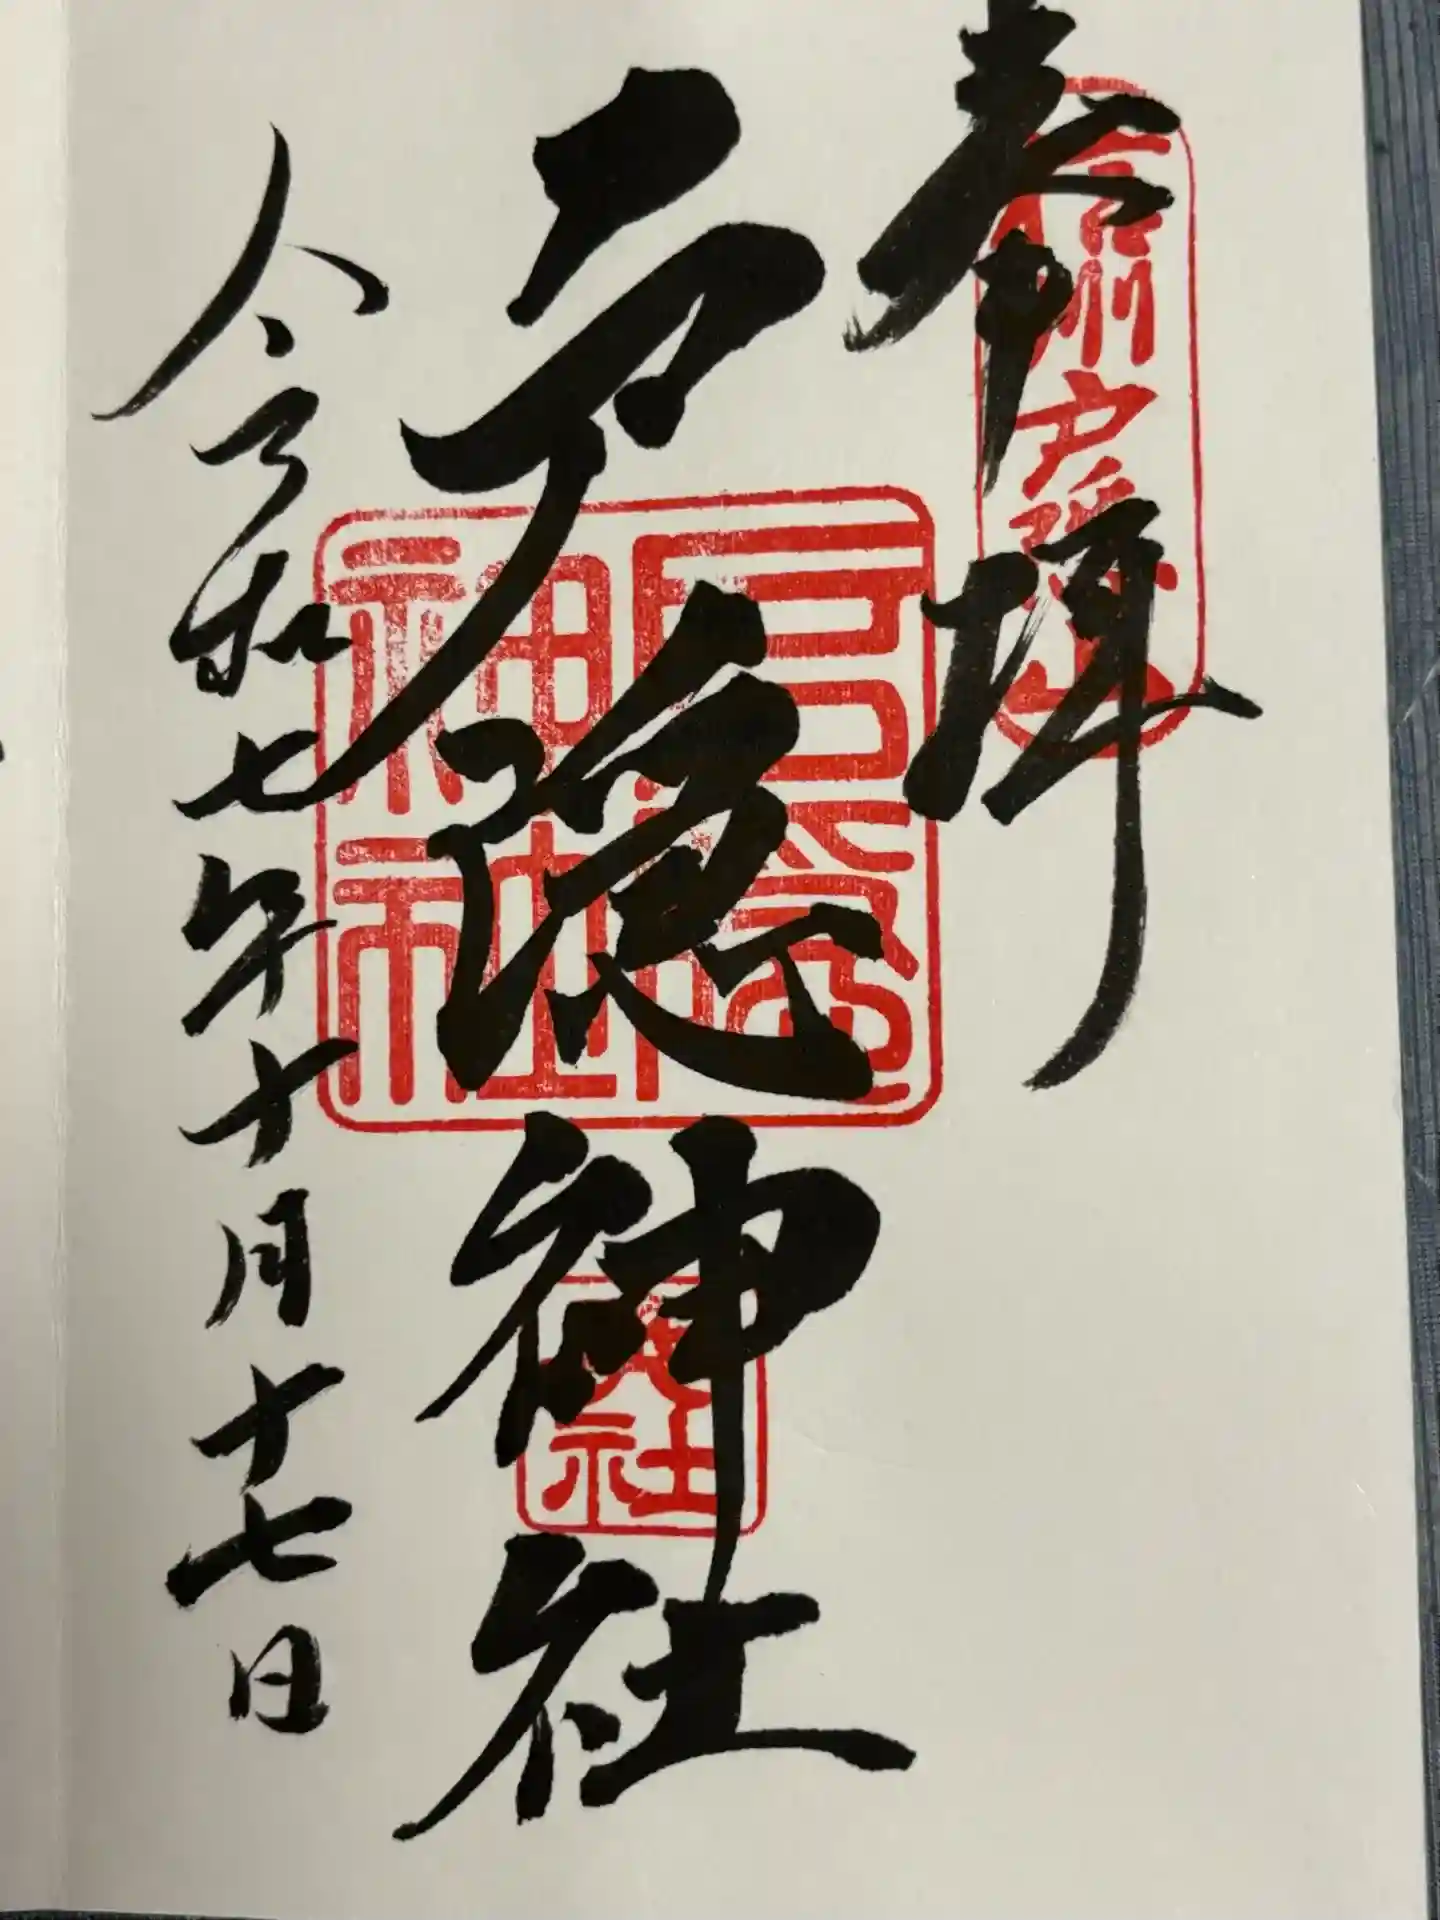 奉拝
信州戸隠山
戸隠神社
戸隠
神社
社
令和七年十月十七日